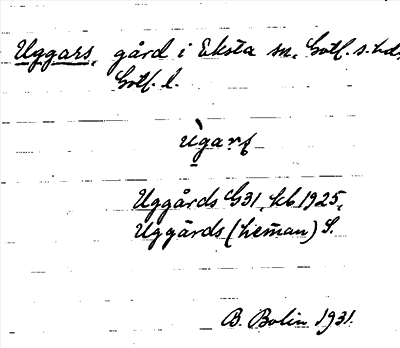 Uggars, gård i Eksta sn. Gotl. s. hd,
Gotl. l.
Uggårds G31, kb 1925,
Uggårds (heman) S.
B. Bolin 1931.